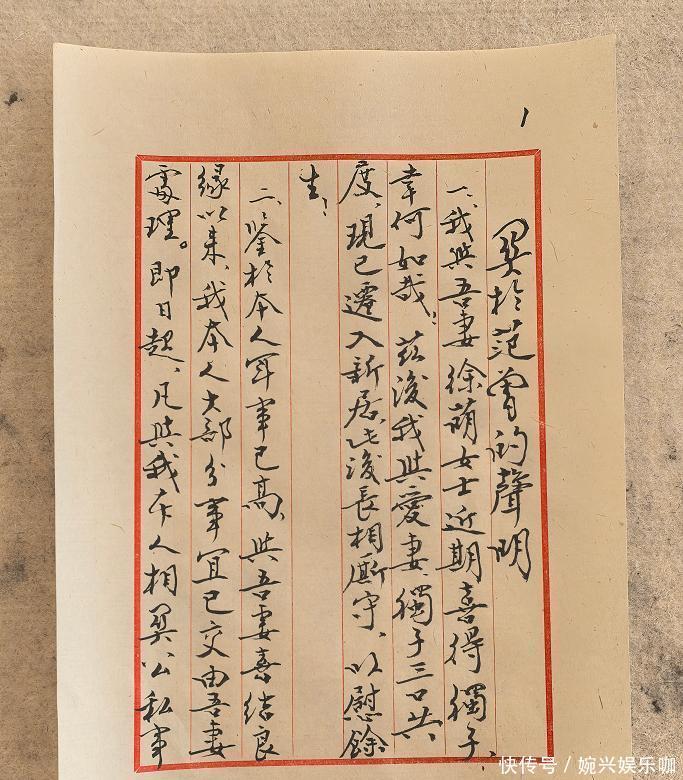 1
關於范曾的聲明
一、我與吾妻徐萌女士近期喜得獨子、
幸何如哉！茲後我與愛妻、獨子三口共
度、現已遷入新居、此後長相厮守、以慰餘
生！
二、鑒於本人年事已高、與吾妻喜結良
緣以来、我本人大部分事宜已交由吾妻
處理。即日起、凡與我本人相關公私事
快传号 / 婉兴娱乐咖